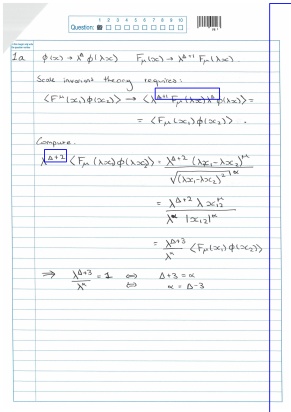 1 2 3 4 5 6 7 8 9 10
Question:
1a φ(x) → λ^Δ φ(λx) F_μ(x) → λ^{Δ+1} F_μ(λx).
Scale invariant theory requires:
⟨F^μ(x₁)φ(x₂)⟩ → ⟨λ^{Δ+1} F_μ(λx)λ^Δ φ(λx)⟩ =
= ⟨F_μ(x₁)φ(x₂)⟩ .
Compute.
λ^{Δ+2} ⟨F_μ(λx)φ(λx₂)⟩ = λ^{Δ+2} (λx₁-λx₂)^μ / √(λx₁-λx₂)^{2α}
= λ^{Δ+2} λ x₁₂^μ / λ^α |x₁₂|^α
= λ^{Δ+3} / λ^α ⟨F_μ(x₁)φ(x₂)⟩
⟹ λ^{Δ+3} / λ^α = 1 ⇔ Δ+3 = α
⇔ α = Δ-3